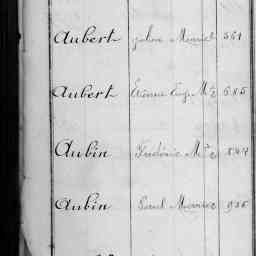 Aubert John 561
Aubert Etienne Eug. Mce 685
Aubin Frédéric Mce
Aubin Paul Maurice 936